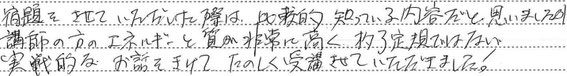 宿題をさせていただいた際は、比較的知っている内容だと思いましたが
講師の方のエネルギーと質が非常に高く、杓子定規ではない
実戦的なお話をきけてたのしく受講させていただきました!